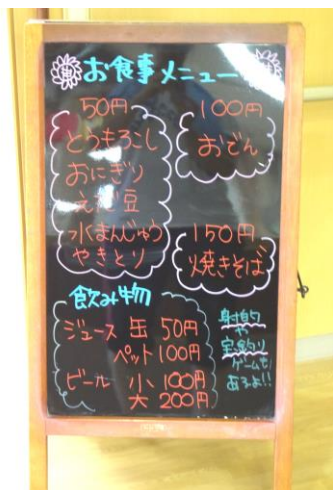 お食事メニュー
50円
とうもろこし
おにぎり
えだ豆
水まんじゅう
やきとり
100円
おでん
150円
焼きそば
飲み物
ジュース 缶 50円
ペット 100円
ビール 小 100円
大 200円
射的
や
宝釣り
ゲームも
あるよ!!